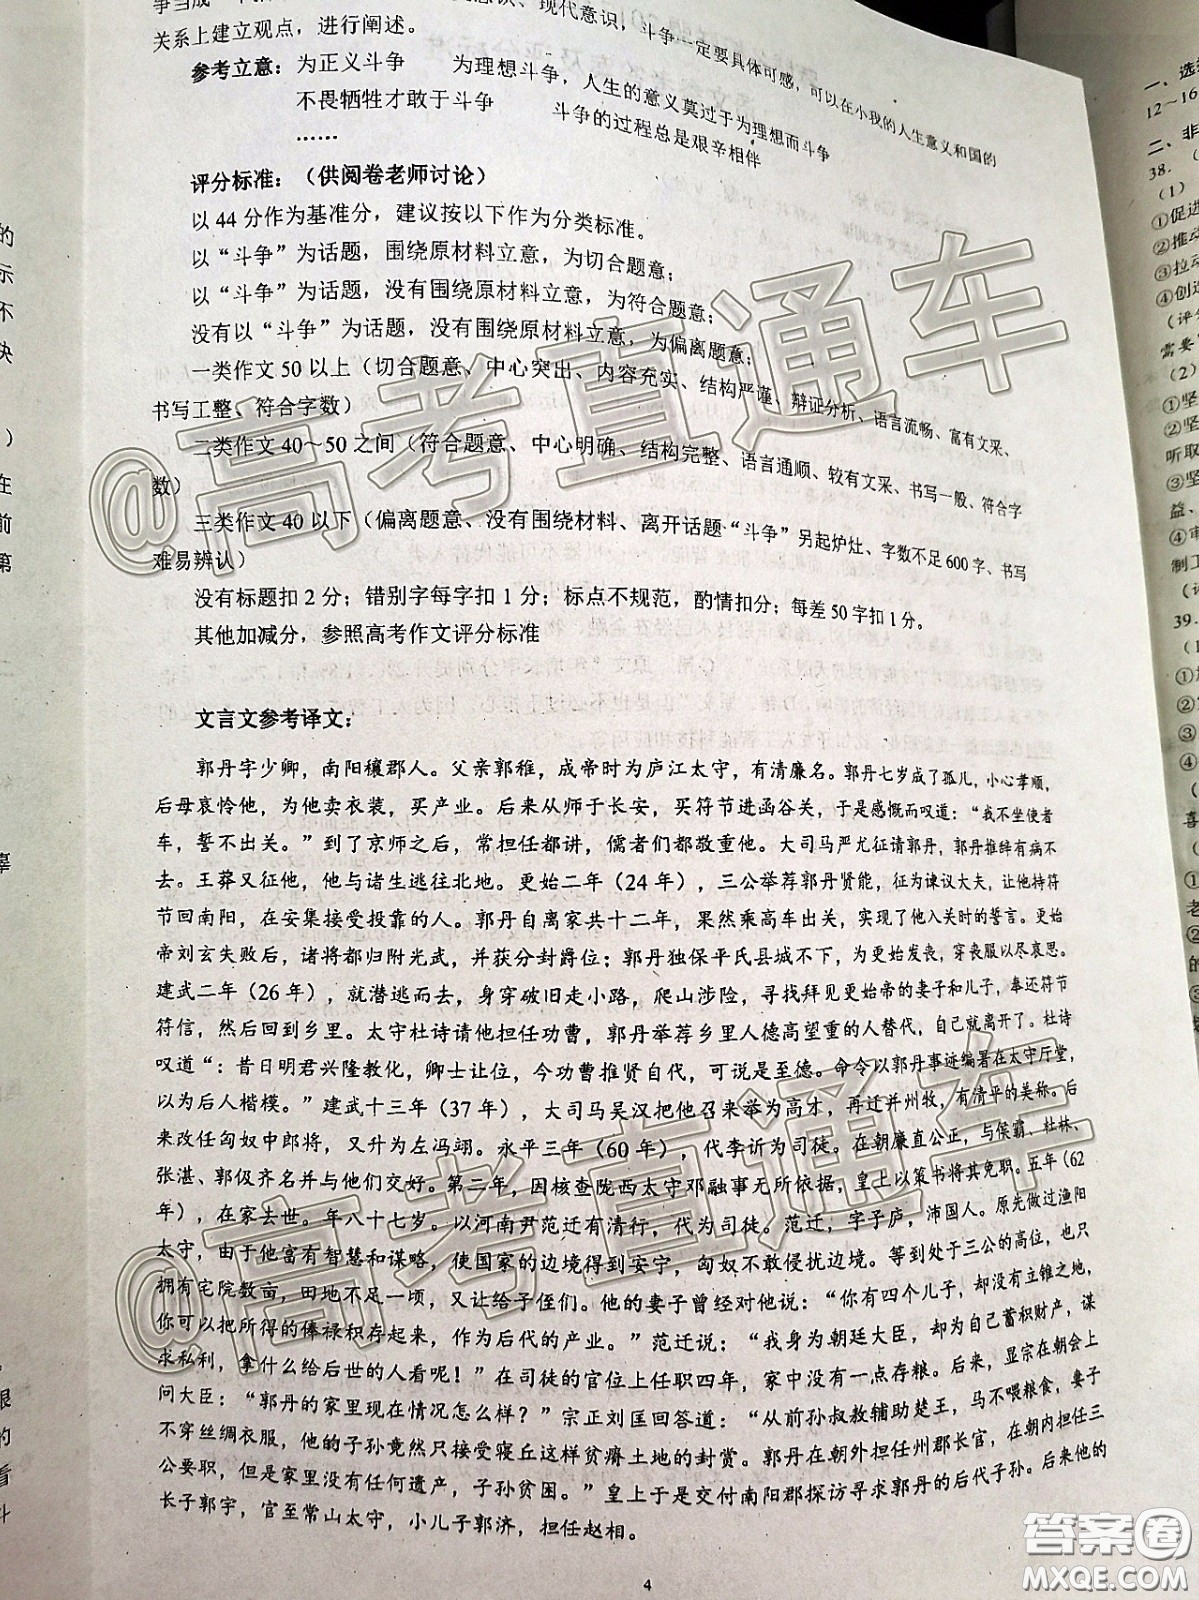 关系上建立观点，进行阐述。
识、现代意识，斗争一定要具体可感，可以在小我的人生意义和国的
参考立意：为正义斗争 为理想斗争，人生的意义莫过于为理想而斗争
不畏牺牲才敢于斗争 斗争的过程总是艰辛相伴
……
评分标准：（供阅卷老师讨论）
以 44 分作为基准分，建议按以下作为分类标准。
以“斗争”为话题，围绕原材料立意，为切合题意；
以“斗争”为话题，没有围绕原材料立意，为符合题意；
没有以“斗争”为话题，没有围绕原材料立意，为偏离题意；
一类作文 50 以上（切合题意、中心突出、内容充实、结构严谨、辩证分析、语言流畅、富有文采、
书写工整、符合字数）
二类作文 40～50 之间（符合题意、中心明确、结构完整、语言通顺、较有文采、书写一般、符合字
数）
三类作文 40 以下（偏离题意、没有围绕材料、离开话题“斗争”另起炉灶、字数不足 600 字、书写
难易辨认）
没有标题扣 2 分；错别字每字扣 1 分；标点不规范，酌情扣分；每差 50 字扣 1 分。
其他加减分，参照高考作文评分标准
文言文参考译文：
郭丹字少卿，南阳穰郡人。父亲郭稚，成帝时为庐江太守，有清廉名。郭丹七岁成了孤儿，小心孝顺，
后母哀怜他，为他卖衣装，买产业。后来从师于长安，买符节进函谷关，于是感慨而叹道：“我不坐使者
车，誓不出关。”到了京师之后，常担任都讲，儒者们都敬重他。大司马严尤征请郭丹，郭丹推辞有病不
去。王莽又征他，他与诸生逃往北地。更始二年（24 年），三公举荐郭丹贤能，征为谏议大夫，让他持符
节回南阳，在安集接受投靠的人。郭丹自离家共十二年，果然乘高车出关，实现了他入关时的誓言。更始
帝刘玄失败后，诸将都归附光武，并获分封爵位；郭丹独保平氏县城不下，为更始发丧，穿丧服以尽哀思。
建武二年（26 年），就潜逃而去，身穿破旧走小路，爬山涉险，寻找拜见更始帝的妻子和儿子，奉还符节
符信，然后回到乡里。太守杜诗请他担任功曹，郭丹举荐乡里人德高望重的人替代，自己就离开了。杜诗
叹道“：昔日明君兴隆教化，卿士让位，今功曹推贤自代，可说是至德。命令以郭丹事迹编署在太守厅堂，
以为后人楷模。”建武十三年（37 年），大司马吴汉把他召来举为高才，再迁并州牧，有清平的美称。后
来改任匈奴中郎将，又升为左冯翊。永平三年（60 年），代李䜣为司徒。在朝廉直公正，与侯霸、杜林、
张湛、郭伋齐名并与他们交好。第二年，因核查陇西太守邓融事无所依据，皇上以策书将其免职。五年（62
年），在家去世。年八十七岁。以河南尹范迁有清行，代为司徒。范迁，字子庐，沛国人。原先做过渔阳
太守，由于他富有智慧和谋略，使国家的边境得到安宁，匈奴不敢侵扰边境。等到处于三公的高位，也只
拥有宅院数亩，田地不足一顷，又让给子侄们。他的妻子曾经对他说：“你有四个儿子，却没有立锥之地，
你可以把所得的俸禄积存起来，作为后代的产业。”范迁说：“我身为朝廷大臣，却为自己蓄积财产，谋
求私利，拿什么给后世的人看呢！”在司徒的官位上任职四年，家中没有一点存粮。后来，显宗在朝会上
问大臣：“郭丹的家里现在情况怎么样？”宗正刘匡回答道：“从前孙叔教辅助楚王，马不喂粮食，妻子
不穿丝绸衣服，他的子孙竟然只接受寝丘这样贫瘠土地的封赏。郭丹在朝外担任州郡长官，在朝内担任三
公要职，但是家里没有任何遗产，子孙贫困。”皇上于是交付南阳郡探访寻求郭丹的后代子孙。后来他的
长子郭宇，官至常山太守，小儿子郭济，担任赵相。
4
@高考直通车
@高考直通车
答案圈
MXQE.COM
12～16
38.
（1）
①促进
③拉动
④创造
需要
（2）
①坚
②坚
听取
③坚
益、
④审
39.